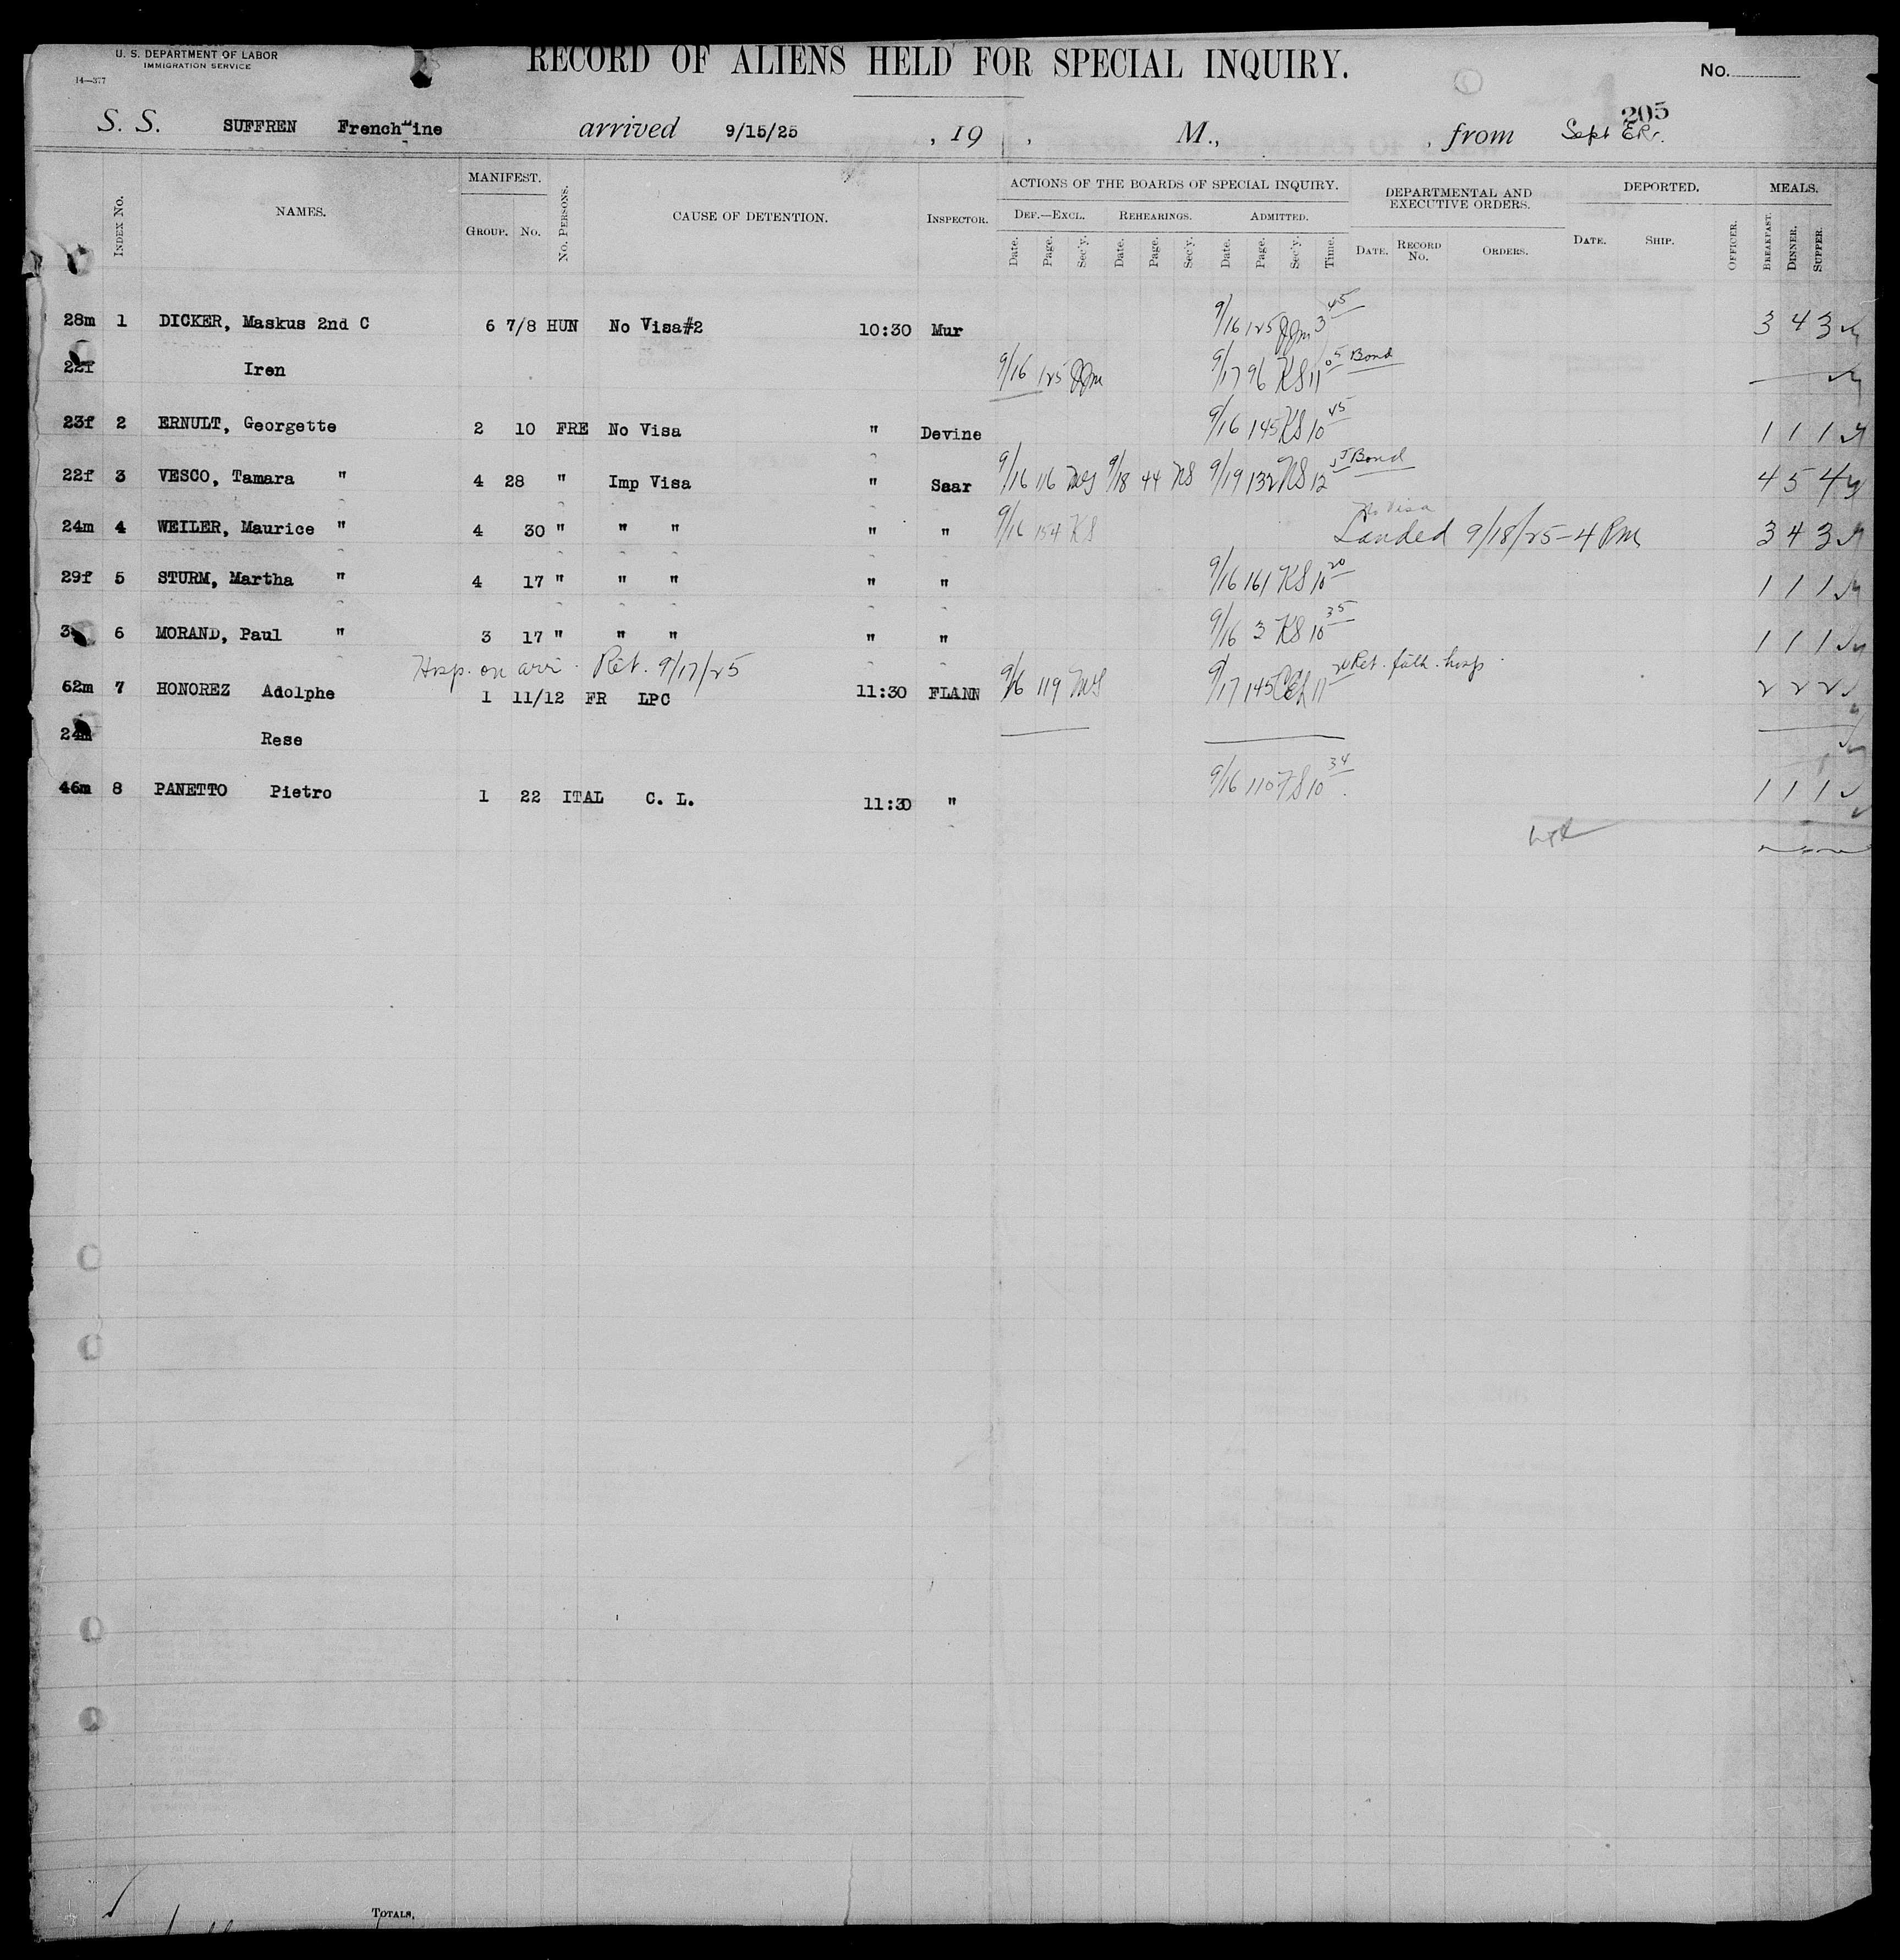 U. S. DEPARTMENT OF LABOR
IMMIGRATION SERVICE
14—377
RECORD OF ALIENS HELD FOR SPECIAL INQUIRY.
No.
205
S. S. SUFFREN French Line arrived 9/15/25 , 19 , M., , from Sept
INDEX No. NAMES. MANIFEST. GROUP. No. No. PERSONS. CAUSE OF DETENTION. INSPECTOR. ACTIONS OF THE BOARDS OF SPECIAL INQUIRY. DEF.—EXCL. Date. Page. Sec'y. REHEARINGS. Date. Page. Sec'y. ADMITTED. Date. Page. Sec'y. Time. DEPARTMENTAL AND EXECUTIVE ORDERS. DATE. RECORD No. ORDERS. DEPORTED. DATE. SHIP. OFFICER. MEALS. BREAKFAST. DINNER. SUPPER.
28m 1 DICKER, Maskus 2nd C 6 7/8 HUN No Visa#2 10:30 Mur 9/16 125 JJm 3 45 3 4 3
22f Iren 9/16 125 JJm 9/17 96 KS 11 05 Bond
23f 2 ERNULT, Georgette 2 10 FRE No Visa " Devine 9/16 145 KS 10 45 1 1 1
22f 3 VESCO, Tamara " 4 28 " Imp Visa " Saar 9/16 116 MS 9/18 44 NS 9/19 132 NS 12 Bond 4 5 4
24m 4 WEILER, Maurice " 4 30 " " " " " 9/16 154 KS Visa Landed 9/18/25 - 4 Pm 3 4 3
29f 5 STURM, Martha " 4 17 " " " " " 9/16 161 KS 10 20 1 1 1
3 6 MORAND, Paul " 3 17 " " " " " 9/16 3 KS 10 35 1 1 1
Hosp. on arri. Ret. 9/17/25
62m 7 HONOREZ Adolphe 1 11/12 FR LPC 11:30 FLANN 9/16 119 MS 9/17 145 CEL 11 20 Ret. fath. hosp. 2 2 2
24 Rese
46m 8 PANETTO Pietro 1 22 ITAL C. L. 11:30 " 9/16 110 FS 10 34 1 1 1
TOTALS,